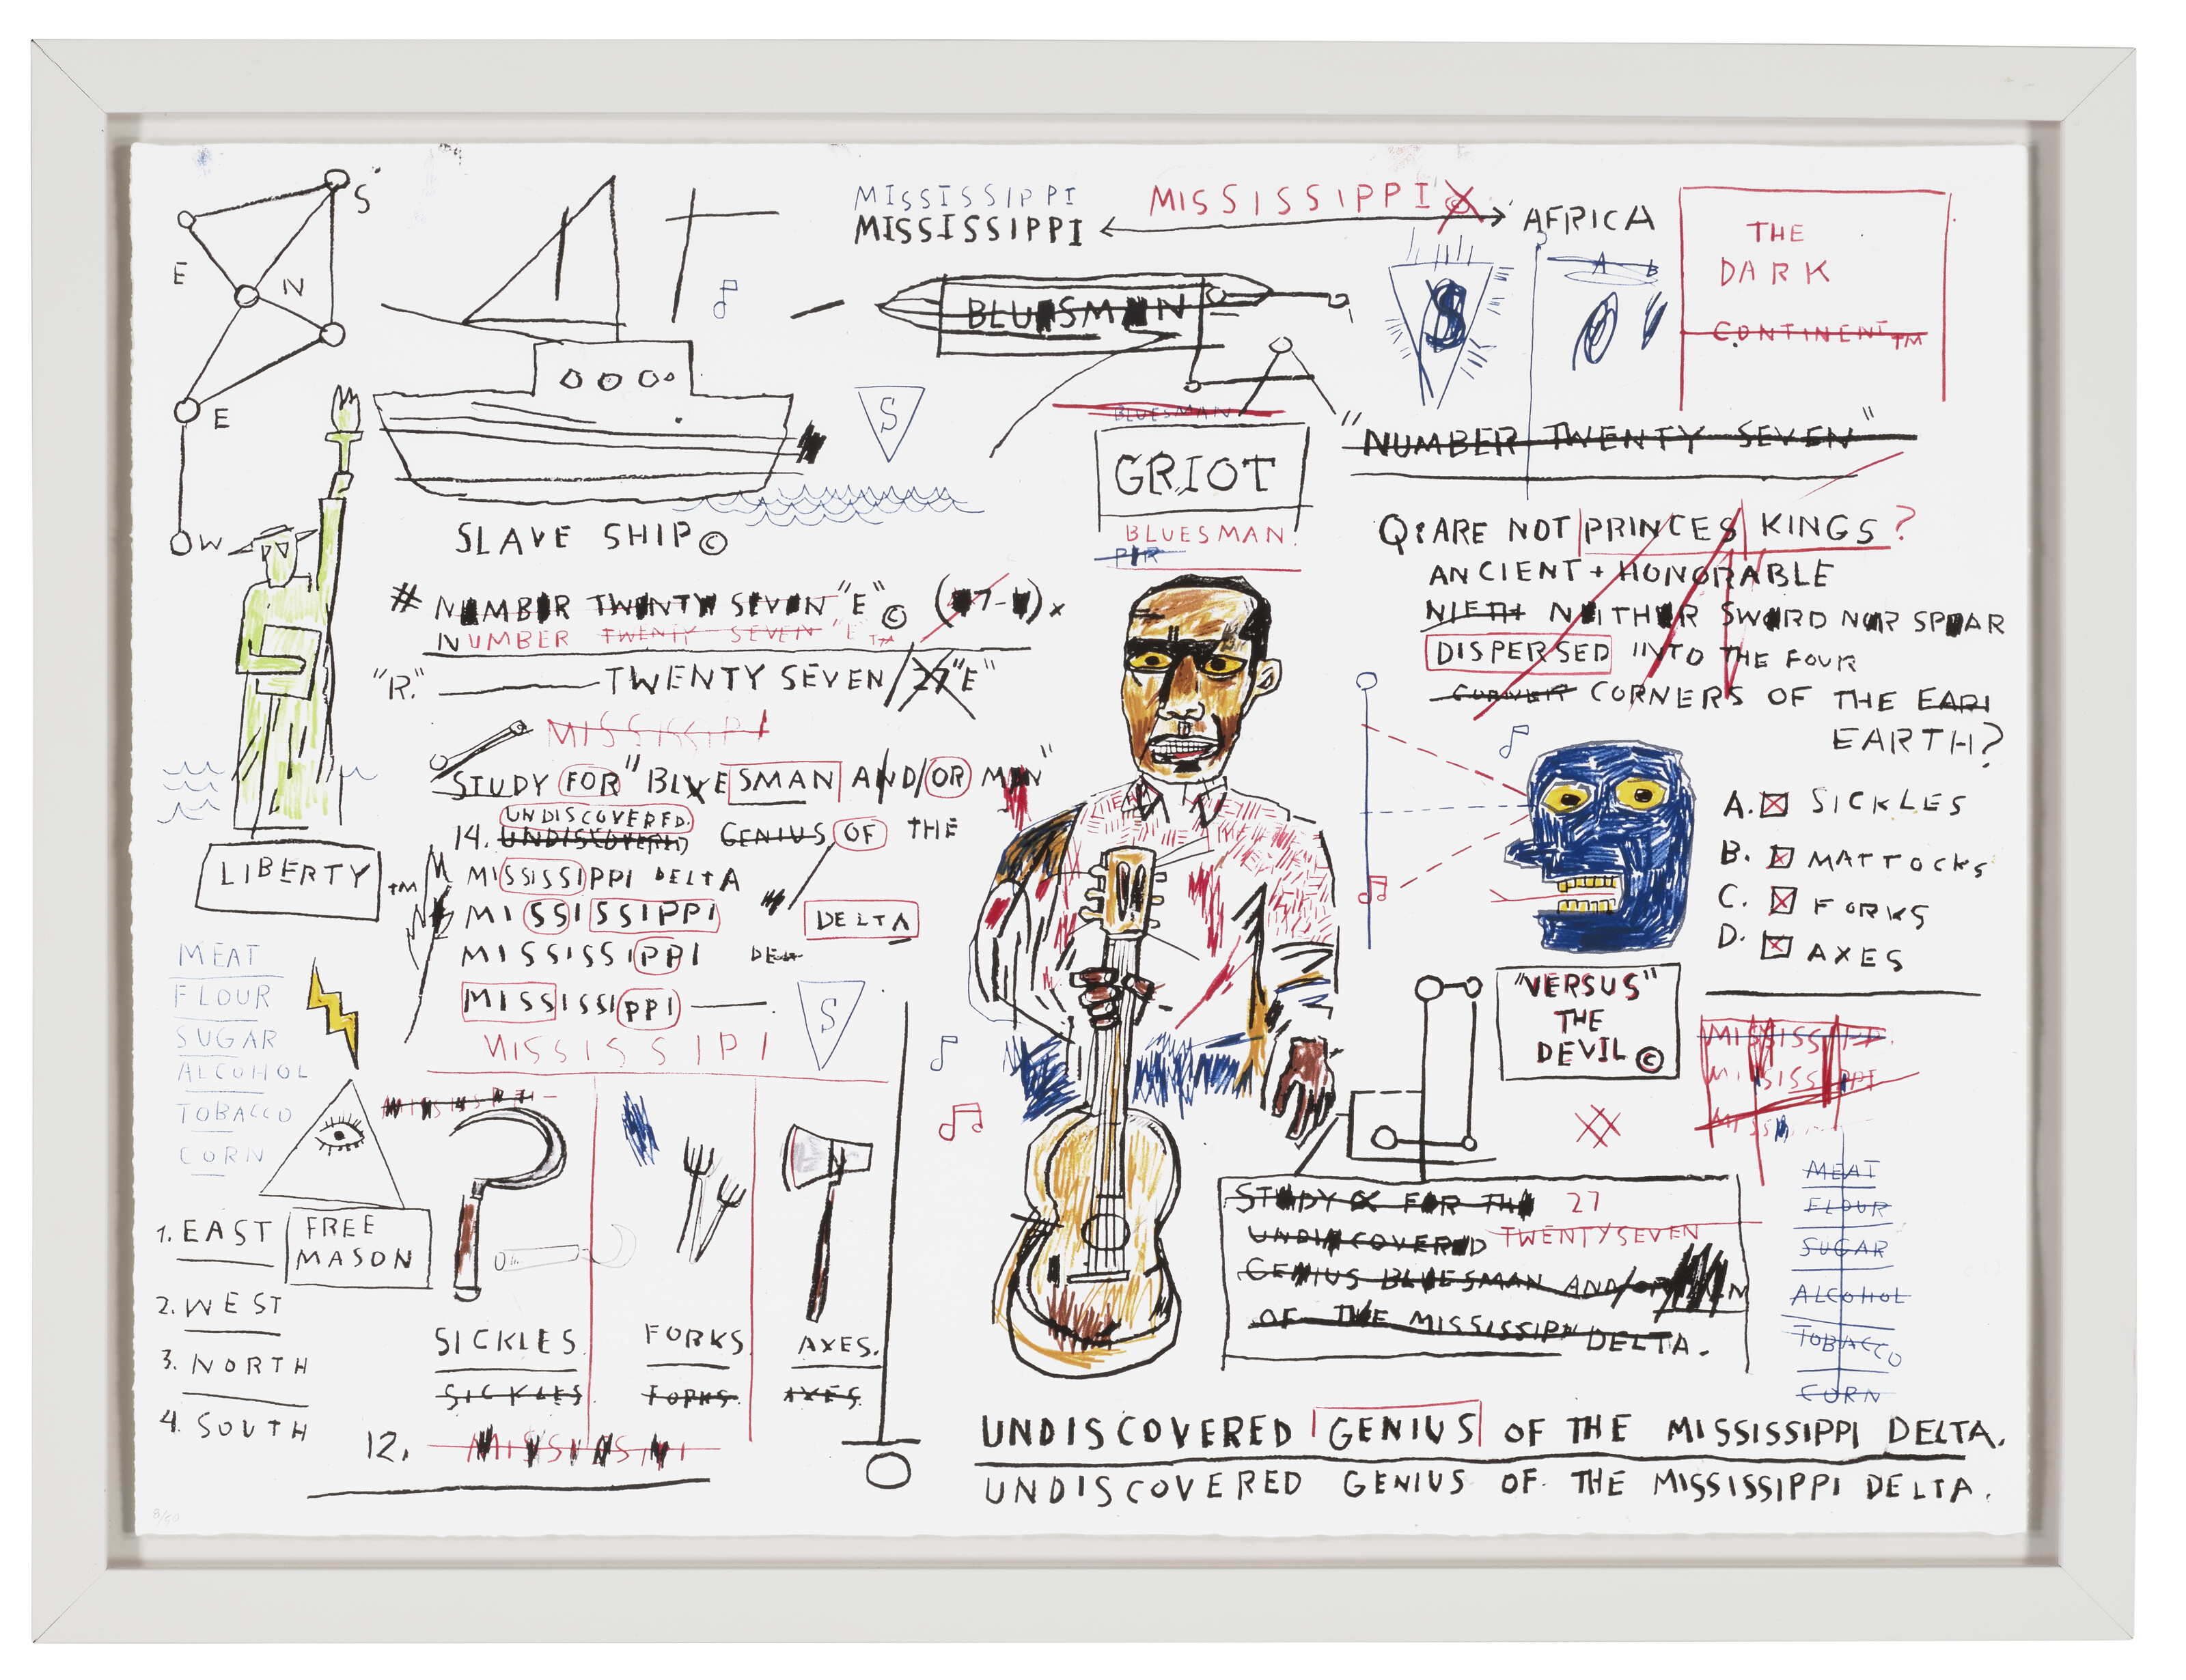 S
E
N
E
W
MISSISSIPPI
MISSISSIPPI
MISSISSIPPI ©
AFRICA
THE
DARK
CONTINENT™
BLUESMAN
S
A B
BLUESMAN
GRIOT
BLUESMAN.
"NUMBER TWENTY SEVEN"
S
SLAVE SHIP ©
# NUMBER TWENTY SEVEN "E" ©
NUMBER TWENTY SEVEN "E"™
"R." TWENTY SEVEN/27 "E"
MISSISSIPPI
STUDY FOR "BLUESMAN AND/OR MAN"
UNDISCOVERED.
14. UNDISCOVERED GENIUS OF THE
MISSISSIPPI DELTA
MISSISSIPPI DELTA
MISSISSIPPI
MISSISSIPPI
S
MISSISSIPI
LIBERTY™
MEAT
FLOUR
SUGAR
ALCOHOL
TOBACCO
CORN
FREE
MASON
1. EAST
2. WEST
3. NORTH
4. SOUTH
SICKLES. FORKS. AXES.
SICKLES FORKS. AXES.
12.
Q: ARE NOT PRINCES KINGS?
ANCIENT + HONORABLE
NIETH NEITHER SWORD NOR SPEAR
DISPERSED INTO THE FOUR
CORNER CORNERS OF THE EARI
EARTH?
A. SICKLES
B. MATTOCKS
C. FORKS
D. AXES
"VERSUS"
THE
DEVIL ©
MISSISSIPPI
MISSISSIPPI
MEAT
FLOUR
SUGAR
ALCOHOL
TOBACCO
CORN
STUDY FOR THE 27
UNDISCOVERED TWENTYSEVEN
GENIUS BLUESMAN AND/OR MAN
OF THE MISSISSIPPI DELTA.
UNDISCOVERED GENIUS OF THE MISSISSIPPI DELTA.
UNDISCOVERED GENIUS OF THE MISSISSIPPI DELTA.
8/50